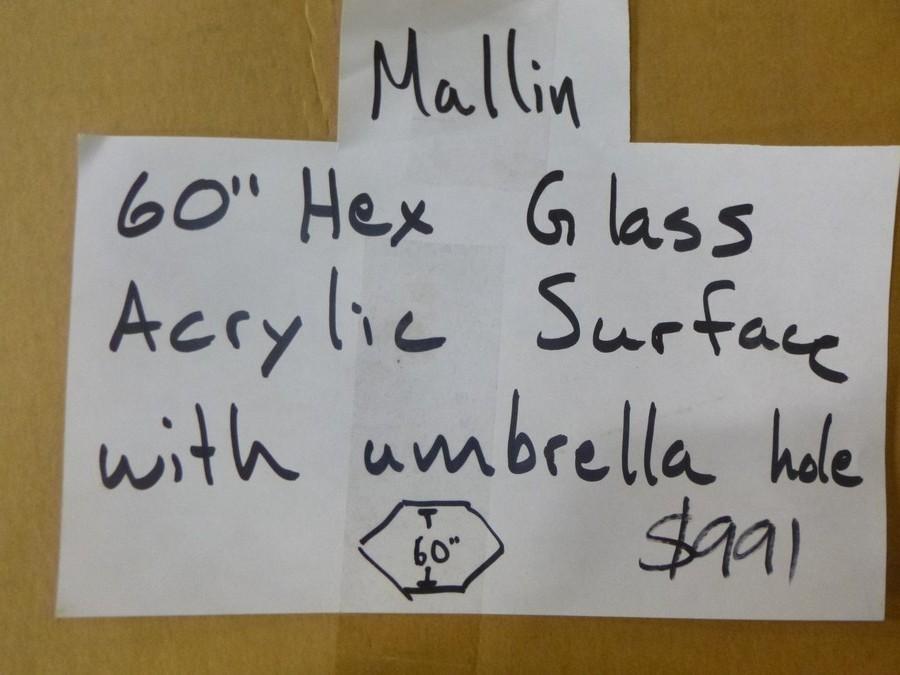 Mallin
60" Hex Glass
Acrylic Surface
with umbrella hole
60"
$991